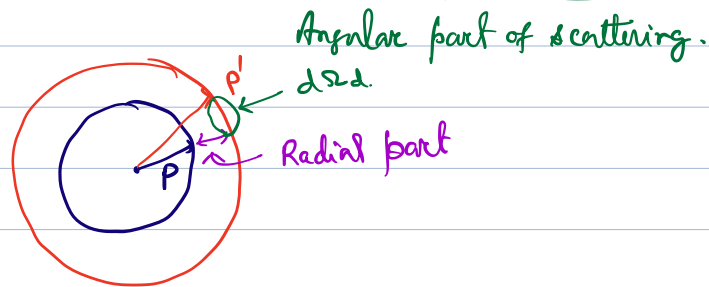 Angular part of scattering.
dΩd.
P'
Radial part
P